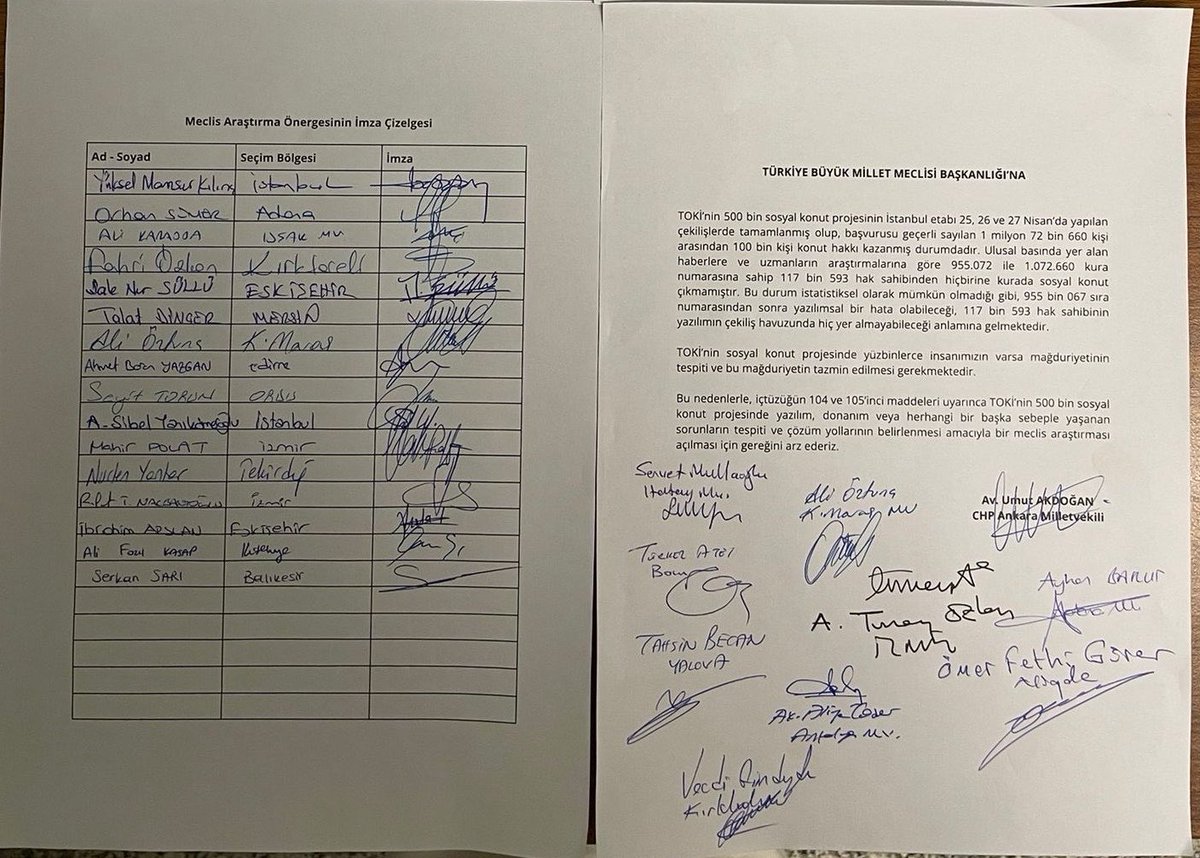 Meclis Araştırma Önergesinin İmza Çizelgesi
Ad - Soyad Seçim Bölgesi İmza
Yüksel Mansur Kılınç istanbul
Orhan SÜMER Adana
ALİ KARAOBA UŞAK MV
Fahri Özkan Kırklareli
Jale Nur SÜLLÜ ESKİŞEHİR
Talat DİNÇER MERSİN
Ali Öztunç K.Maraş
Ahmet Baran YAZGAN Edirne
Seyit TORUN ORDU
A. Sibel Yanıkömeroğlu İstanbul
Mahir POLAT İzmir
Nurten Yontar Tekirdağ
NALBANTOĞLU İzmir
İbrahim ARSLAN Eskişehir
Ali Fazıl KASAP Kütahya
Serkan SARI Balıkesir
TÜRKİYE BÜYÜK MİLLET MECLİSİ BAŞKANLIĞI'NA
TOKİ'nin 500 bin sosyal konut projesinin İstanbul etabı 25, 26 ve 27 Nisan'da yapılan
çekilişlerde tamamlanmış olup, başvurusu geçerli sayılan 1 milyon 72 bin 660 kişi
arasından 100 bin kişi konut hakkı kazanmış durumdadır. Ulusal basında yer alan
haberlere ve uzmanların araştırmalarına göre 955.072 ile 1.072.660 kura
numarasına sahip 117 bin 593 hak sahibinden hiçbirine kurada sosyal konut
çıkmamıştır. Bu durum istatistiksel olarak mümkün olmadığı gibi, 955 bin 067 sıra
numarasından sonra yazılımsal bir hata olabileceği, 117 bin 593 hak sahibinin
yazılımın çekiliş havuzunda hiç yer almayabileceği anlamına gelmektedir.
TOKİ'nin sosyal konut projesinde yüzbinlerce insanımızın varsa mağduriyetinin
tespiti ve bu mağduriyetin tazmin edilmesi gerekmektedir.
Bu nedenlerle, içtüzüğün 104 ve 105'inci maddeleri uyarınca TOKİ'nin 500 bin sosyal
konut projesinde yazılım, donanım veya herhangi bir başka sebeple yaşanan
sorunların tespiti ve çözüm yollarının belirlenmesi amacıyla bir meclis araştırması
açılması için gereğini arz ederiz.
Servet Mullaoğlu
Hatay Mv.
Ali Öztunç
K.Maraş MV
Av. Umut AKDOĞAN
CHP Ankara Milletvekili
Türker ATEŞ
Bolu
Ayhan BARUT
A. Tuncay Özkan
İzmir
TAHSİN BECAN
YALOVA
Ömer Fethi Gürer
Niğde
Antalya M.V.
Vecdi Gündoğdu
Kırklareli